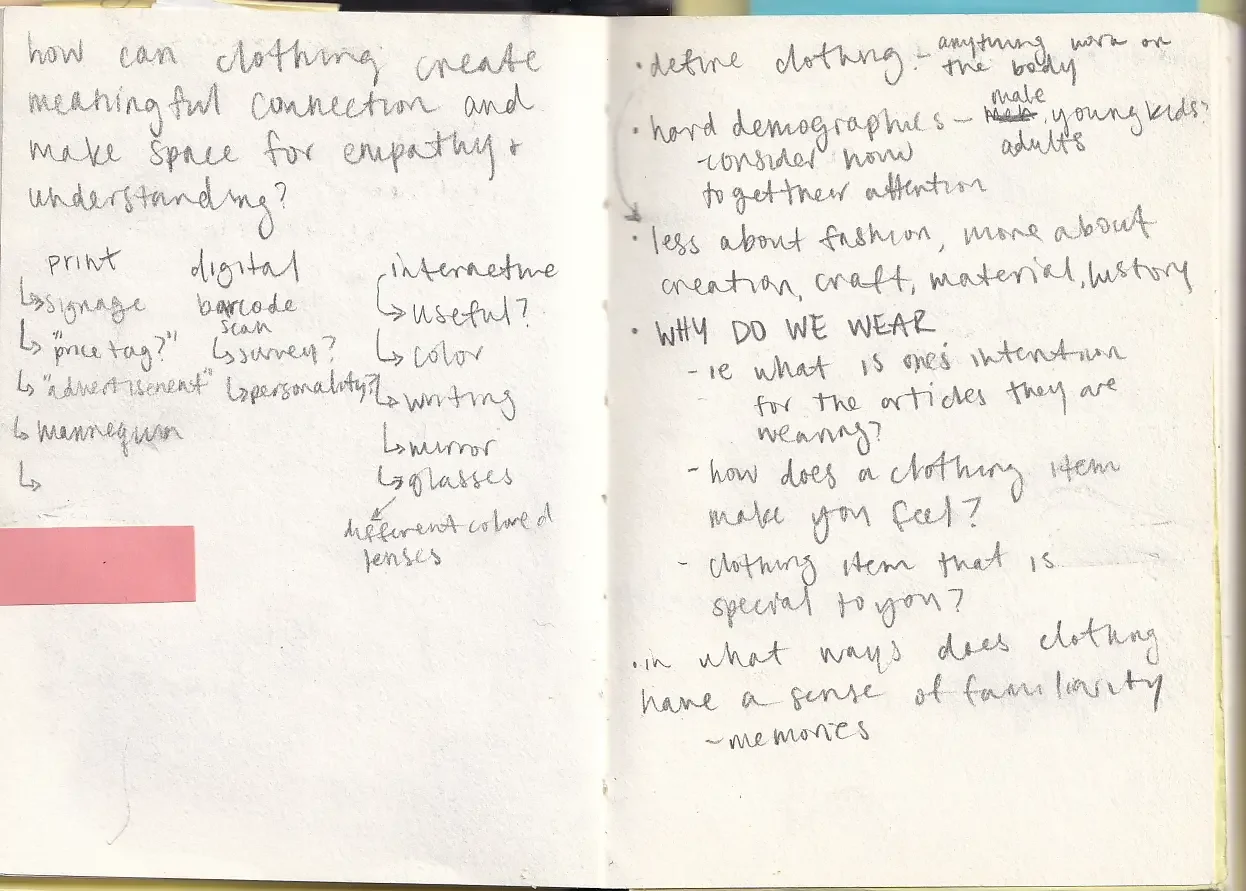 how can clothing create
meaningful connection and
make space for empathy +
understanding?
print
↳ signage
↳ "price tag?"
↳ "advertisement"
↳ mannequin
↳
digital
barcode
scan
↳ survey?
↳ personality?
interactive
↳ useful?
↳ color
↳ writing
↳ mirror
↳ glasses
different colored
lenses
• define clothing - anything worn on
the body
• hard demographics - male, young kids?
adults
- consider how
to get their attention
• less about fashion, more about
creation, craft, material, history
• WHY DO WE WEAR
- ie what is one's intention
for the articles they are
wearing?
- how does a clothing item
make you feel?
- clothing item that is
special to you?
• in what ways does clothing
have a sense of familiarity
- memories